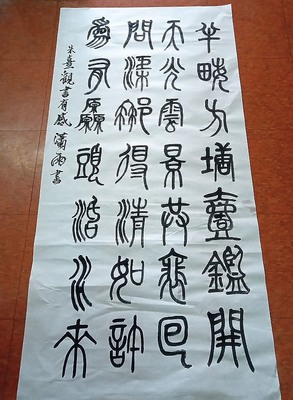 半畮方塘壹鑑開
天光雲景共裵回
問渠那得清如許
為有厵頭活水來
朱熹觀書有感 瀟雨書